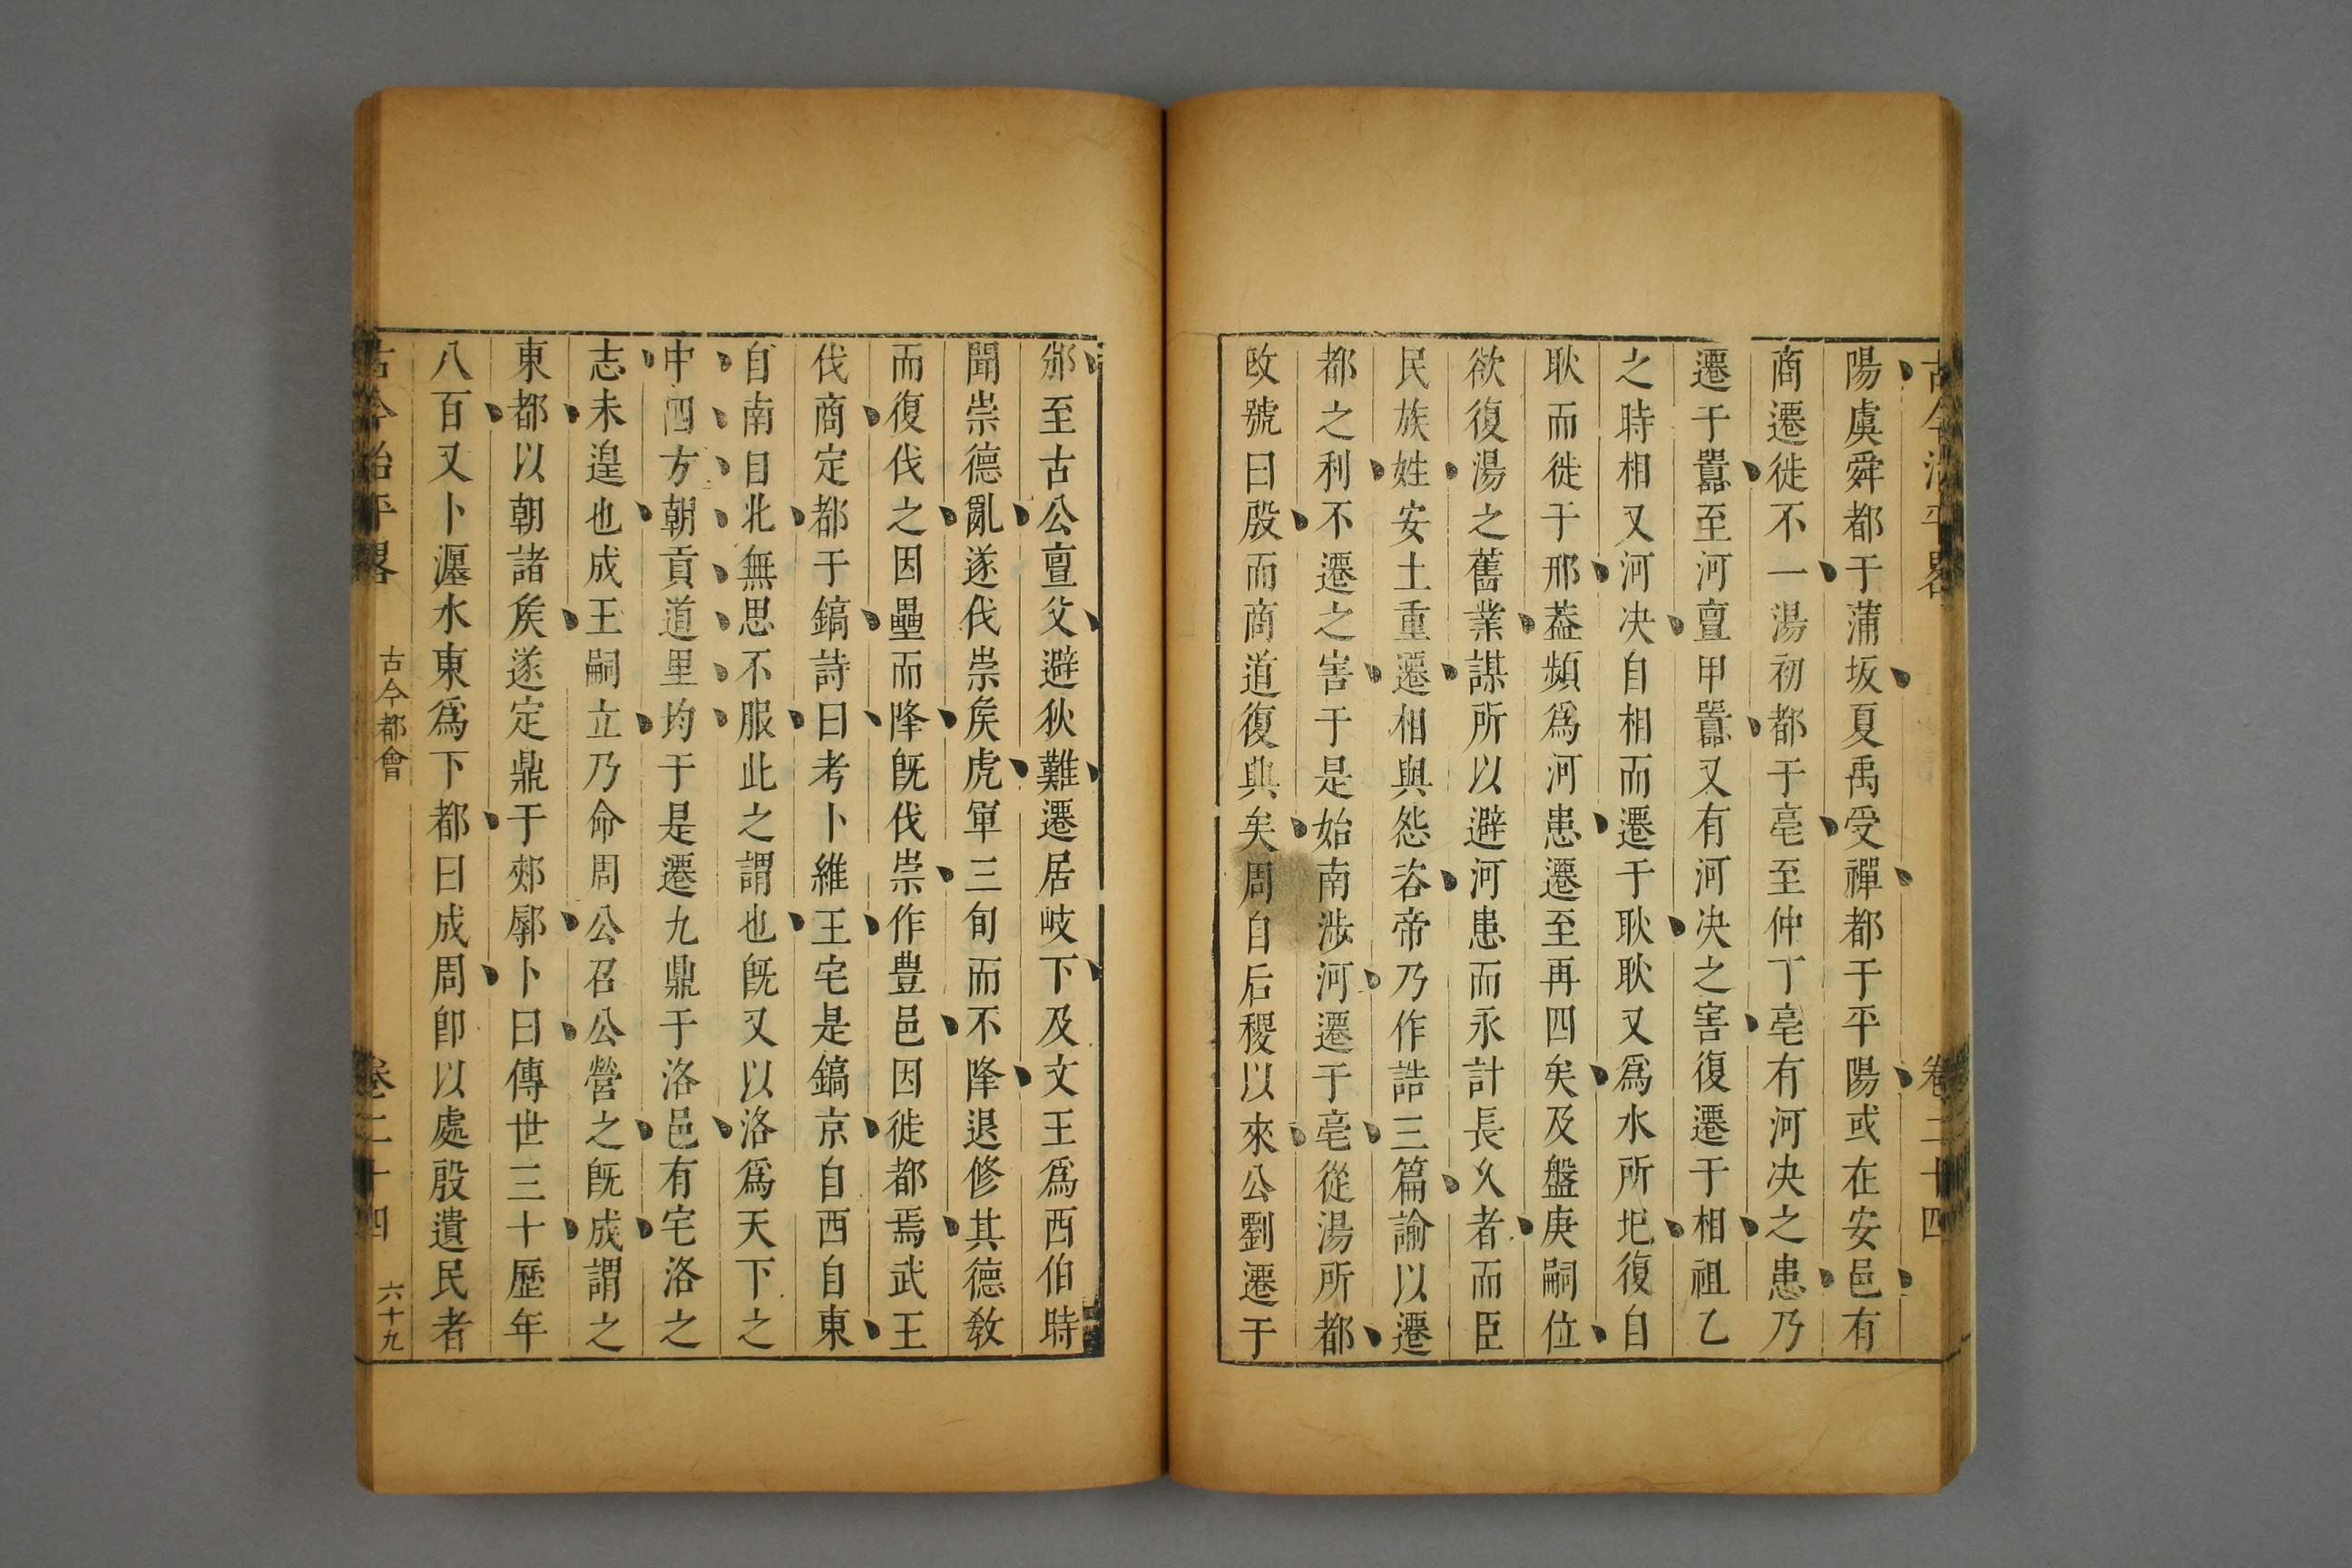 古今治平畧 卷二十四
陽虞舜都于蒲坂夏禹受禪都于平陽或在安邑有
商遷徙不一湯初都于亳至仲丁亳有河决之患乃
遷于囂至河亶甲囂又有河决之害復遷于相祖乙
之時相又河决自相而遷于耿耿又爲水所圯復自
耿而徙于邢葢頻爲河患遷至再四矣及盤庚嗣位
欲復湯之舊業謀所以避河患而永計長久者而臣
民族姓安土重遷相與怨咨帝乃作誥三篇諭以遷
都之利不遷之害于是始南涉河遷于亳從湯所都
改號曰殷而商道復興矣周自后稷以來公劉遷于
邠至古公亶父避狄難遷居岐下及文王爲西伯時
聞崇德亂遂伐崇矦虎軍三旬而不降退修其德教
而復伐之因壘而降旣伐崇作豐邑因徙都焉武王
伐商定都于鎬詩曰考卜維王宅是鎬京自西自東
自南自北無思不服此之謂也旣又以洛爲天下之
中四方朝貢道里均于是遷九鼎于洛邑有宅洛之
志未遑也成王嗣立乃命周公召公營之旣成謂之
東都以朝諸矦遂定鼎于郟鄏卜曰傳世三十歷年
八百又卜瀍水東爲下都曰成周卽以處殷遺民者
古今治平畧 古今都會 卷二十四 六十九